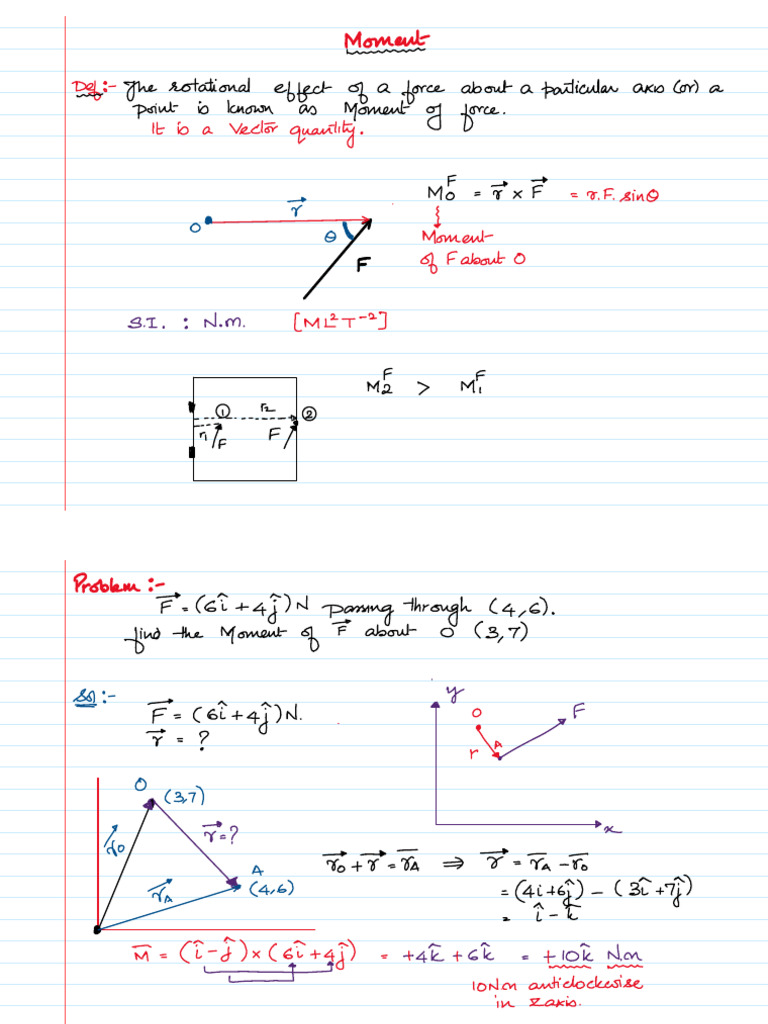 Moment
Def:- The rotational effect of a force about a particular axis (or) a
point is known as Moment of force.
It is a Vector quantity.
M₀^F = r⃗ × F⃗ = r.F. sinθ
r⃗
O
θ
F
Moment
of F about O
S.I. : N.m. [ML²T⁻²]
M₂^F > M₁^F
① r₂ ②
r₁ F F
Problem :-
F⃗ = (6î + 4ĵ) N passing through (4,6).
find the Moment of F⃗ about O (3,7)
Sol :-
F⃗ = (6î + 4ĵ) N.
r⃗ = ?
y
O
F
A
r
x
O
(3,7)
r⃗ = ?
r⃗o
A
(4,6)
r⃗A
r⃗o + r⃗ = r̅A ⇒ r⃗ = r̅A - r̅o
= (4i + 6ĵ) - (3î + 7ĵ)
= î - k̂
M̅ = (î - ĵ) × (6î + 4ĵ) = +4k̂ + 6k̂ = +10k̂ N.m
10Nm anticlockwise
in z axis.